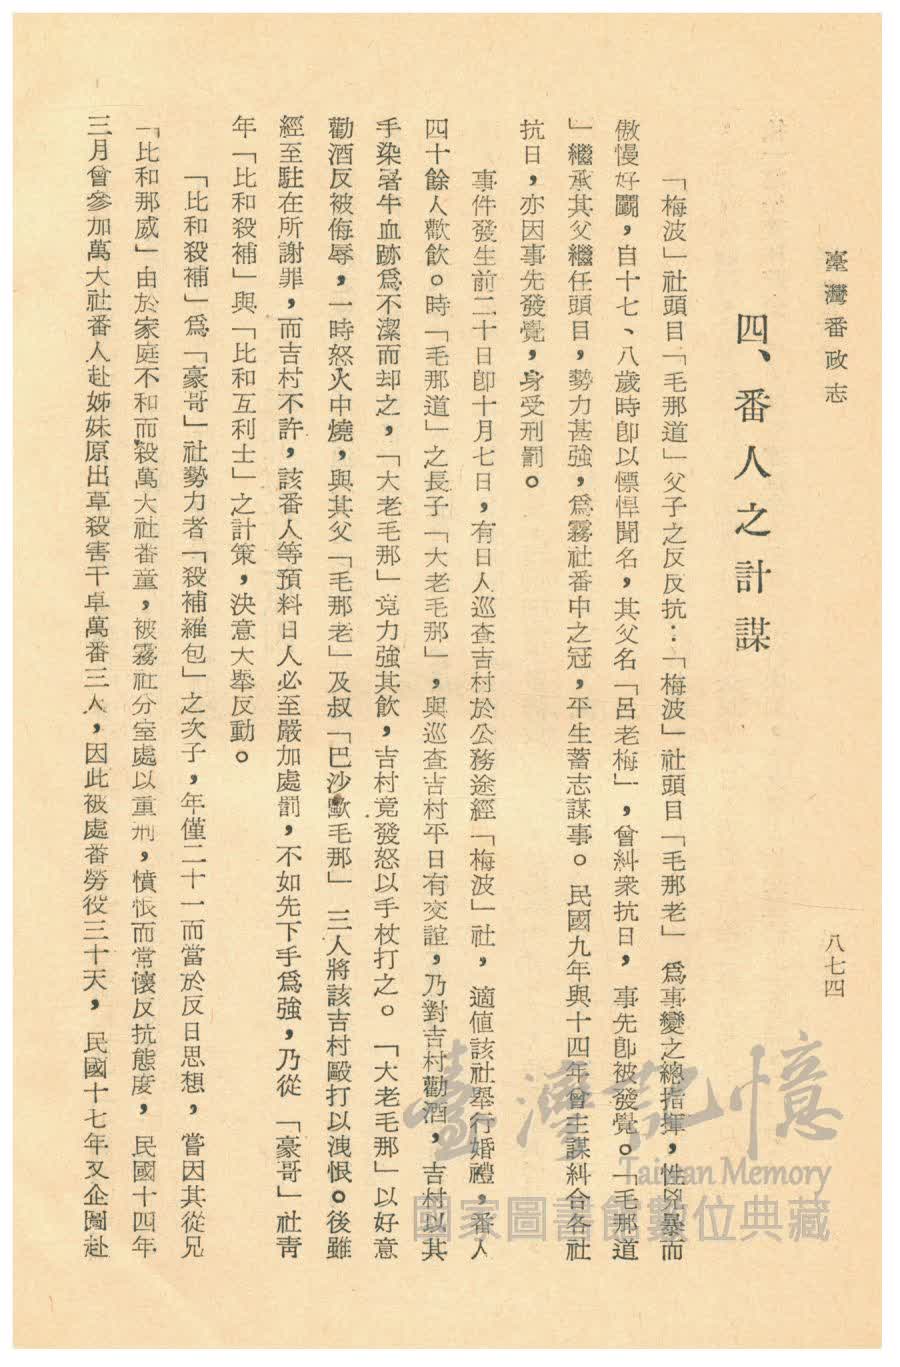 臺灣番政志
八七四
四、番人之計謀
「梅波」社頭目「毛那道」父子之反反抗：「梅波」社頭目「毛那老」爲事變之總指揮，性兇暴而
傲慢好鬭，自十七、八歲時卽以慓悍聞名，其父名「呂老梅」，曾糾衆抗日，事先卽被發覺。「毛那道
」繼承其父繼任頭目，勢力甚強，爲霧社番中之冠，平生蓄志謀事。民國九年與十四年曾主謀糾合各社
抗日，亦因事先發覺，身受刑罰。
事件發生前二十日卽十月七日，有日人巡查吉村於公務途經「梅波」社，適値該社舉行婚禮，番人
四十餘人歡飮。時「毛那道」之長子「大老毛那」，與巡查吉村平日有交誼，乃對吉村勸酒，吉村以其
手染署牛血跡爲不潔而却之，「大老毛那」竟力強其飮，吉村竟發怒以手杖打之。「大老毛那」以好意
勸酒反被侮辱，一時怒火中燒，與其父「毛那老」及叔「巴沙歐毛那」三人將該吉村毆打以洩恨。後雖
經至駐在所謝罪，而吉村不許，該番人等預料日人必至嚴加處罰，不如先下手爲強，乃從「豪哥」社靑
年「比和殺補」與「比和互利士」之計策，決意大舉反動。
「比和殺補」爲「豪哥」社勢力者「殺補羅包」之次子，年僅二十一而當於反日思想，嘗因其從兄
「比和那威」由於家庭不和而殺萬大社番童，被霧社分室處以重刑，憤恨而常懷反抗態度，民國十四年
三月曾參加萬大社番人赴姊妹原出草殺害干卓萬番三人，因此被處番勞役三十天，民國十七年又企圖赴
臺灣記憶
Taiwan Memory
國家圖書館數位典藏